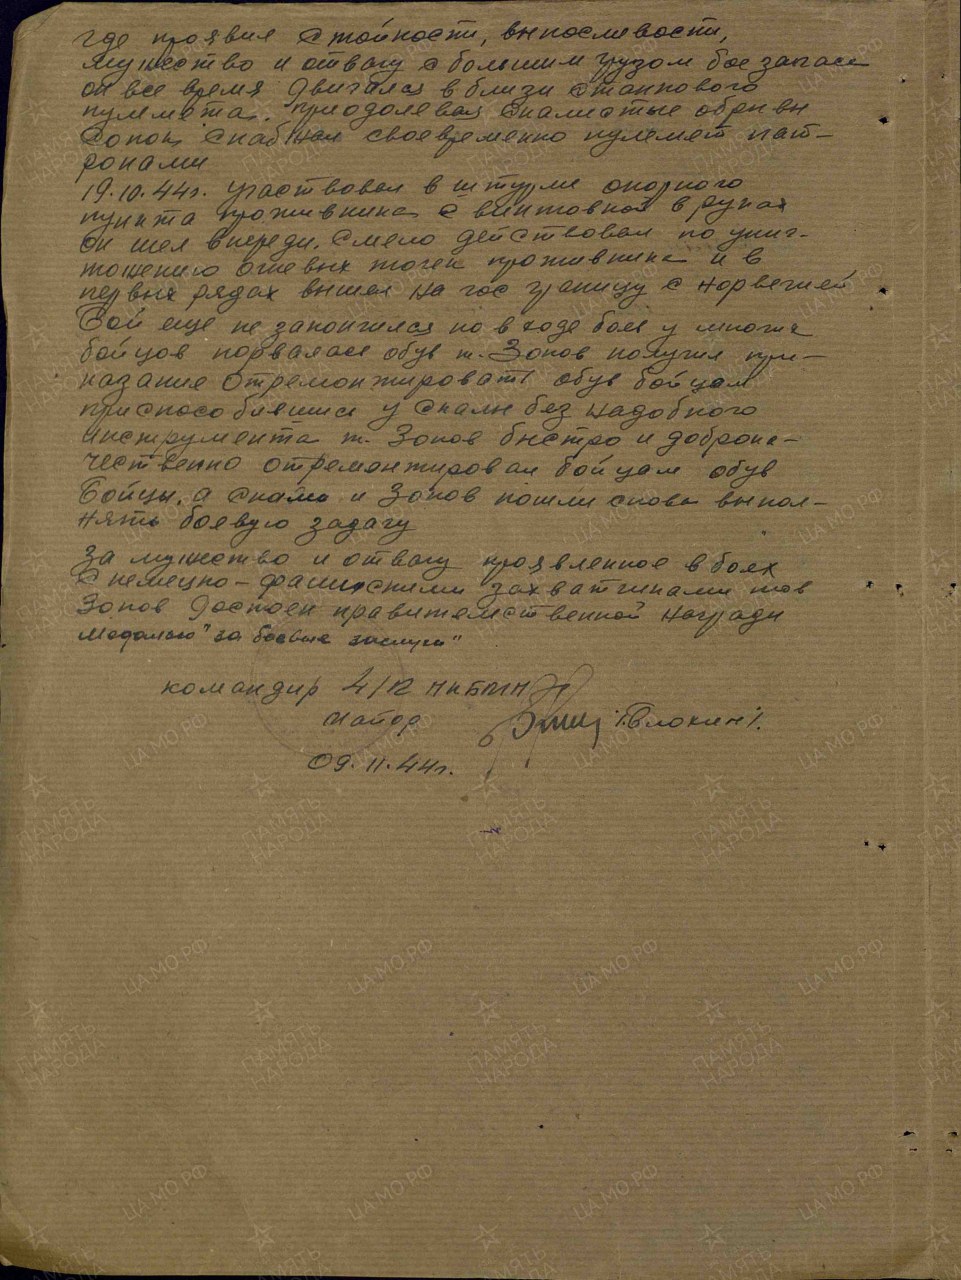 где проявил стойкости, выносливости,
мужество и отвагу с большим грузом боезапаса
он все время двигался вблизи станкового
пулемета. приодолевая скалистые обрывы
сопок, снабжал своевременно пулемет пат-
ронами
19.10.44г. участвовал в штурме опорного
пункта противника с винтовкой в руках
он шел впереди. смело действовал по унич-
тожению огневых точек противника и в
первых рядах вышел на гос границу с Норвегией
Бой еще не закончился но в ходе боев у многих
бойцов порвалась обув т. Зопов получил при-
казание отремонжировать обув бойцам
приспособившись у скалы без надобного
инструмента т. Зопов быстро и доброка-
чественно отремонжировал бойцам обув
Бойцы, а с ними и Зопов пошли снова выпол-
нять боевую задачу
За мужество и отвагу проявленное в боях
с немецко-фашискими захватчиками тов
Зопов достоен правительственной награды
медалью "за боевые заслуги"
командир 4/12
майор /Блокин/.
09.11.44г.
ПАМЯТЬ НАРОДА
ЦА МО РФ